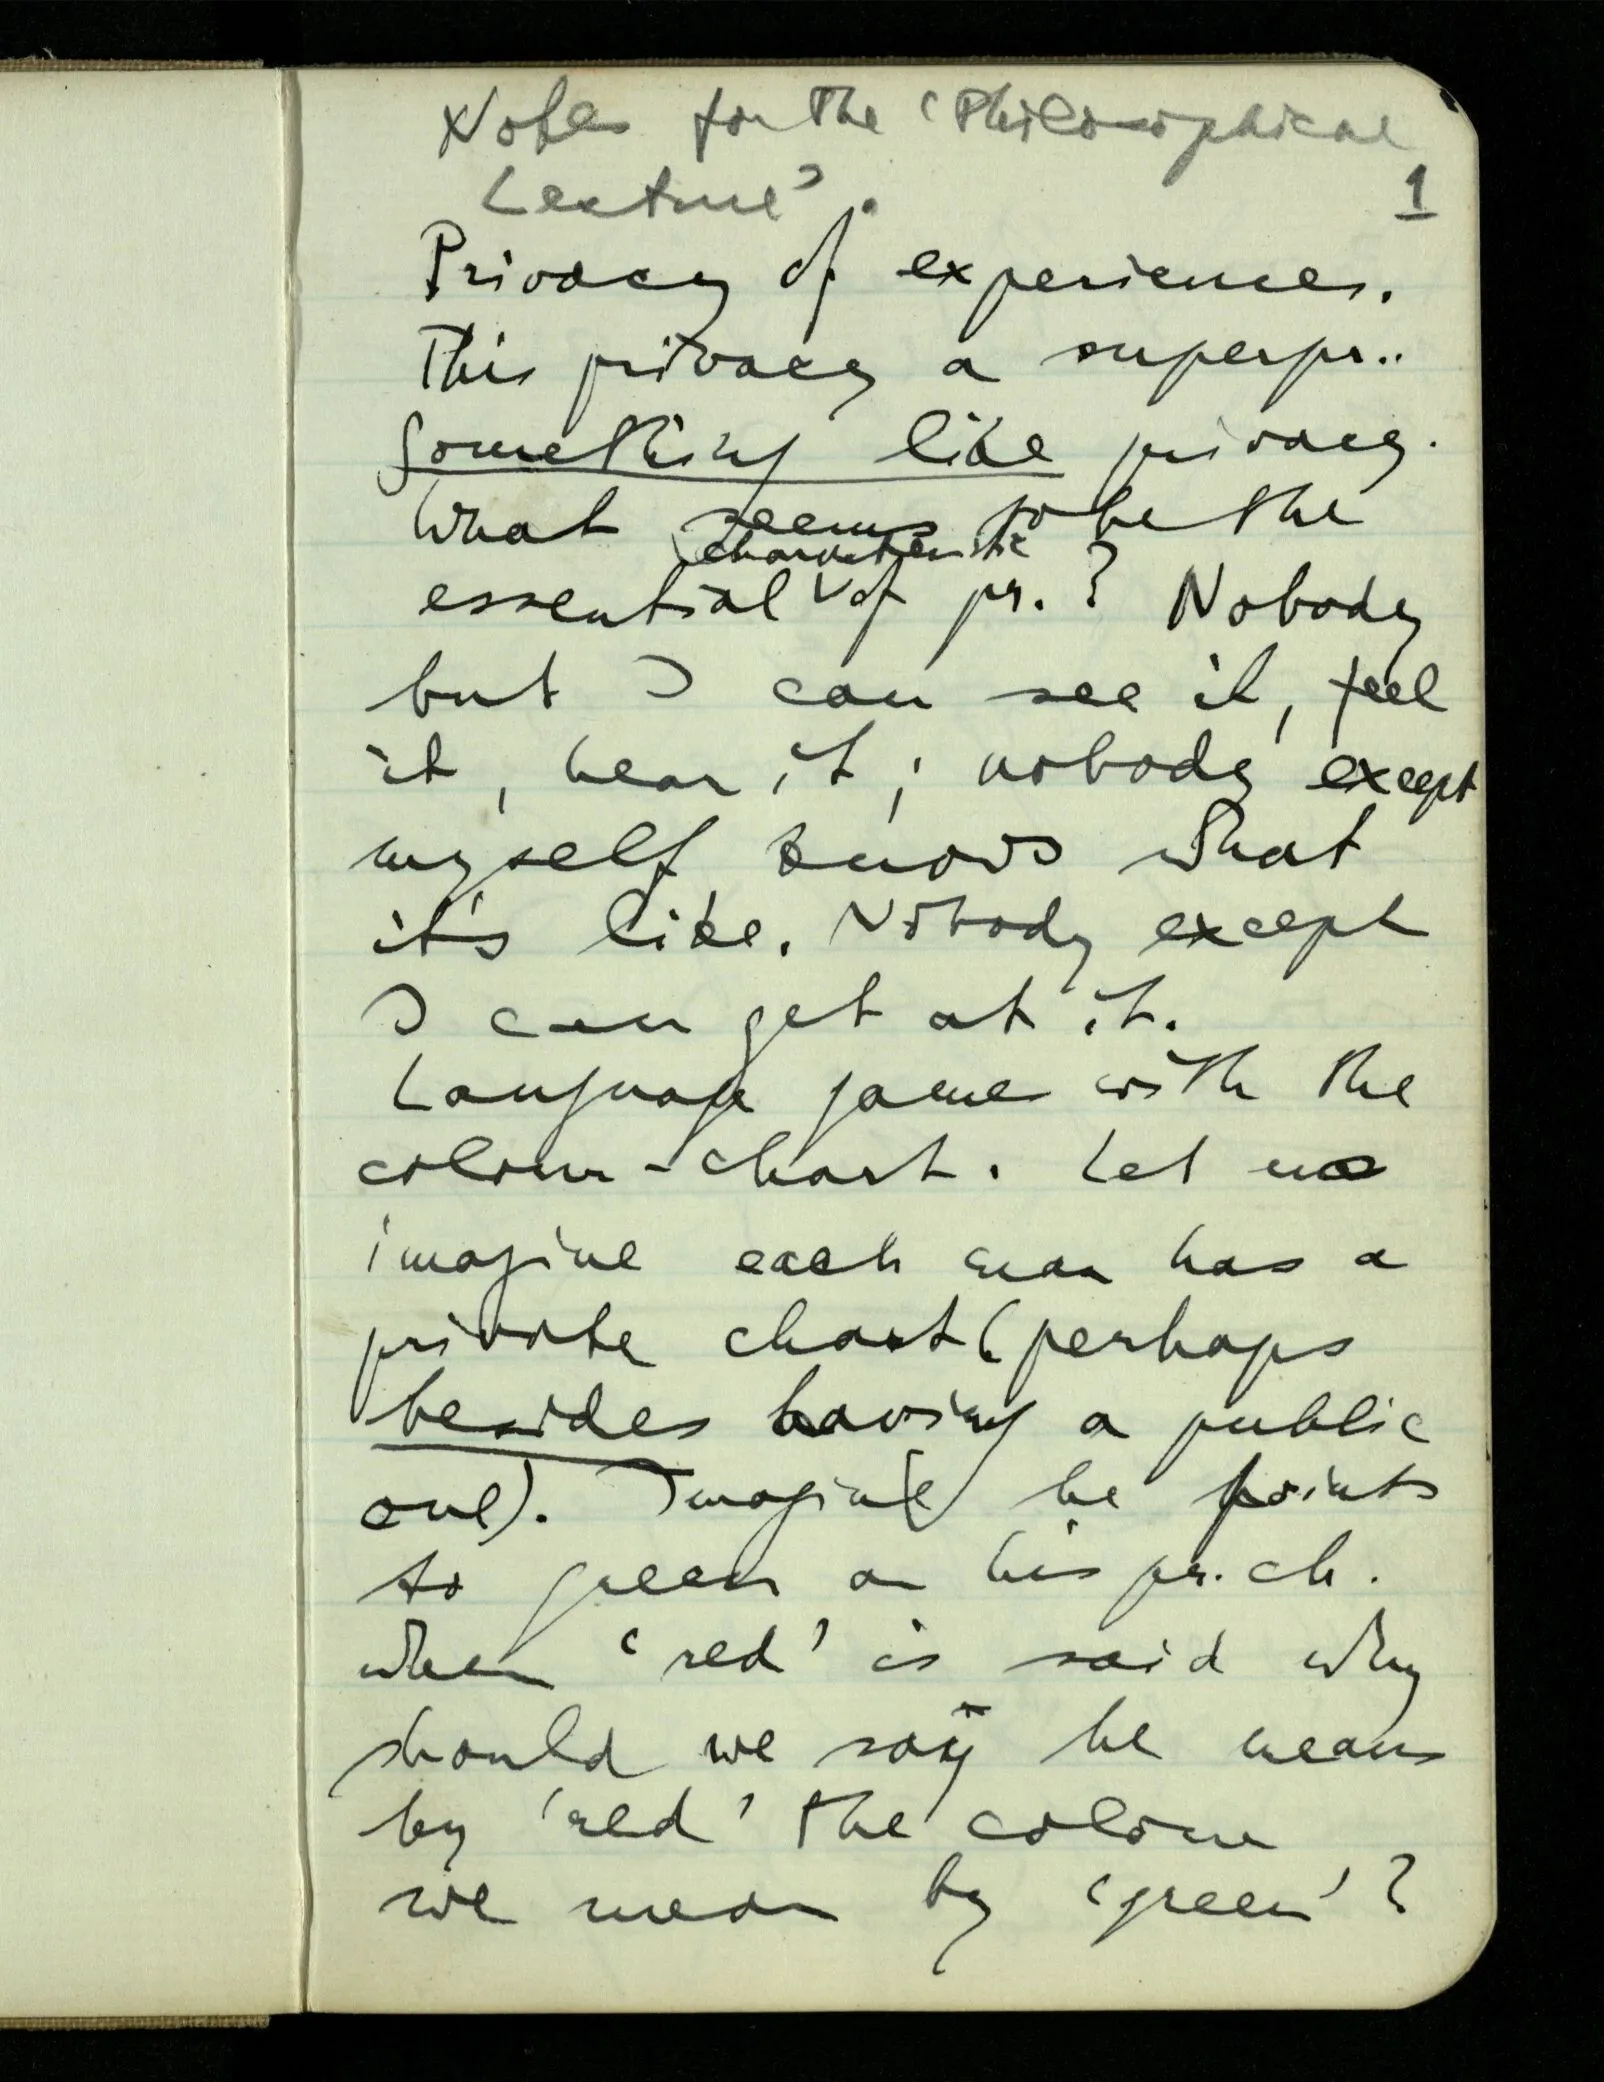 Notes for the 'Philosophical
Lecture'.
1
Privacy of experiences.
This privacy a superpr..
Something like privacy.
What seems to be the
characteristic
essential of pr.? Nobody
but I can see it, feel
it, hear it; nobody except
myself knows what
it's like. Nobody except
I can get at it.
Language game with the
colour-chart. Let us
imagine each man has a
private chart (perhaps
besides having a public
one). Imagine he points
to green on his pr. ch.
when 'red' is said why
should we say he means
by 'red' the colour
we mean by 'green'?